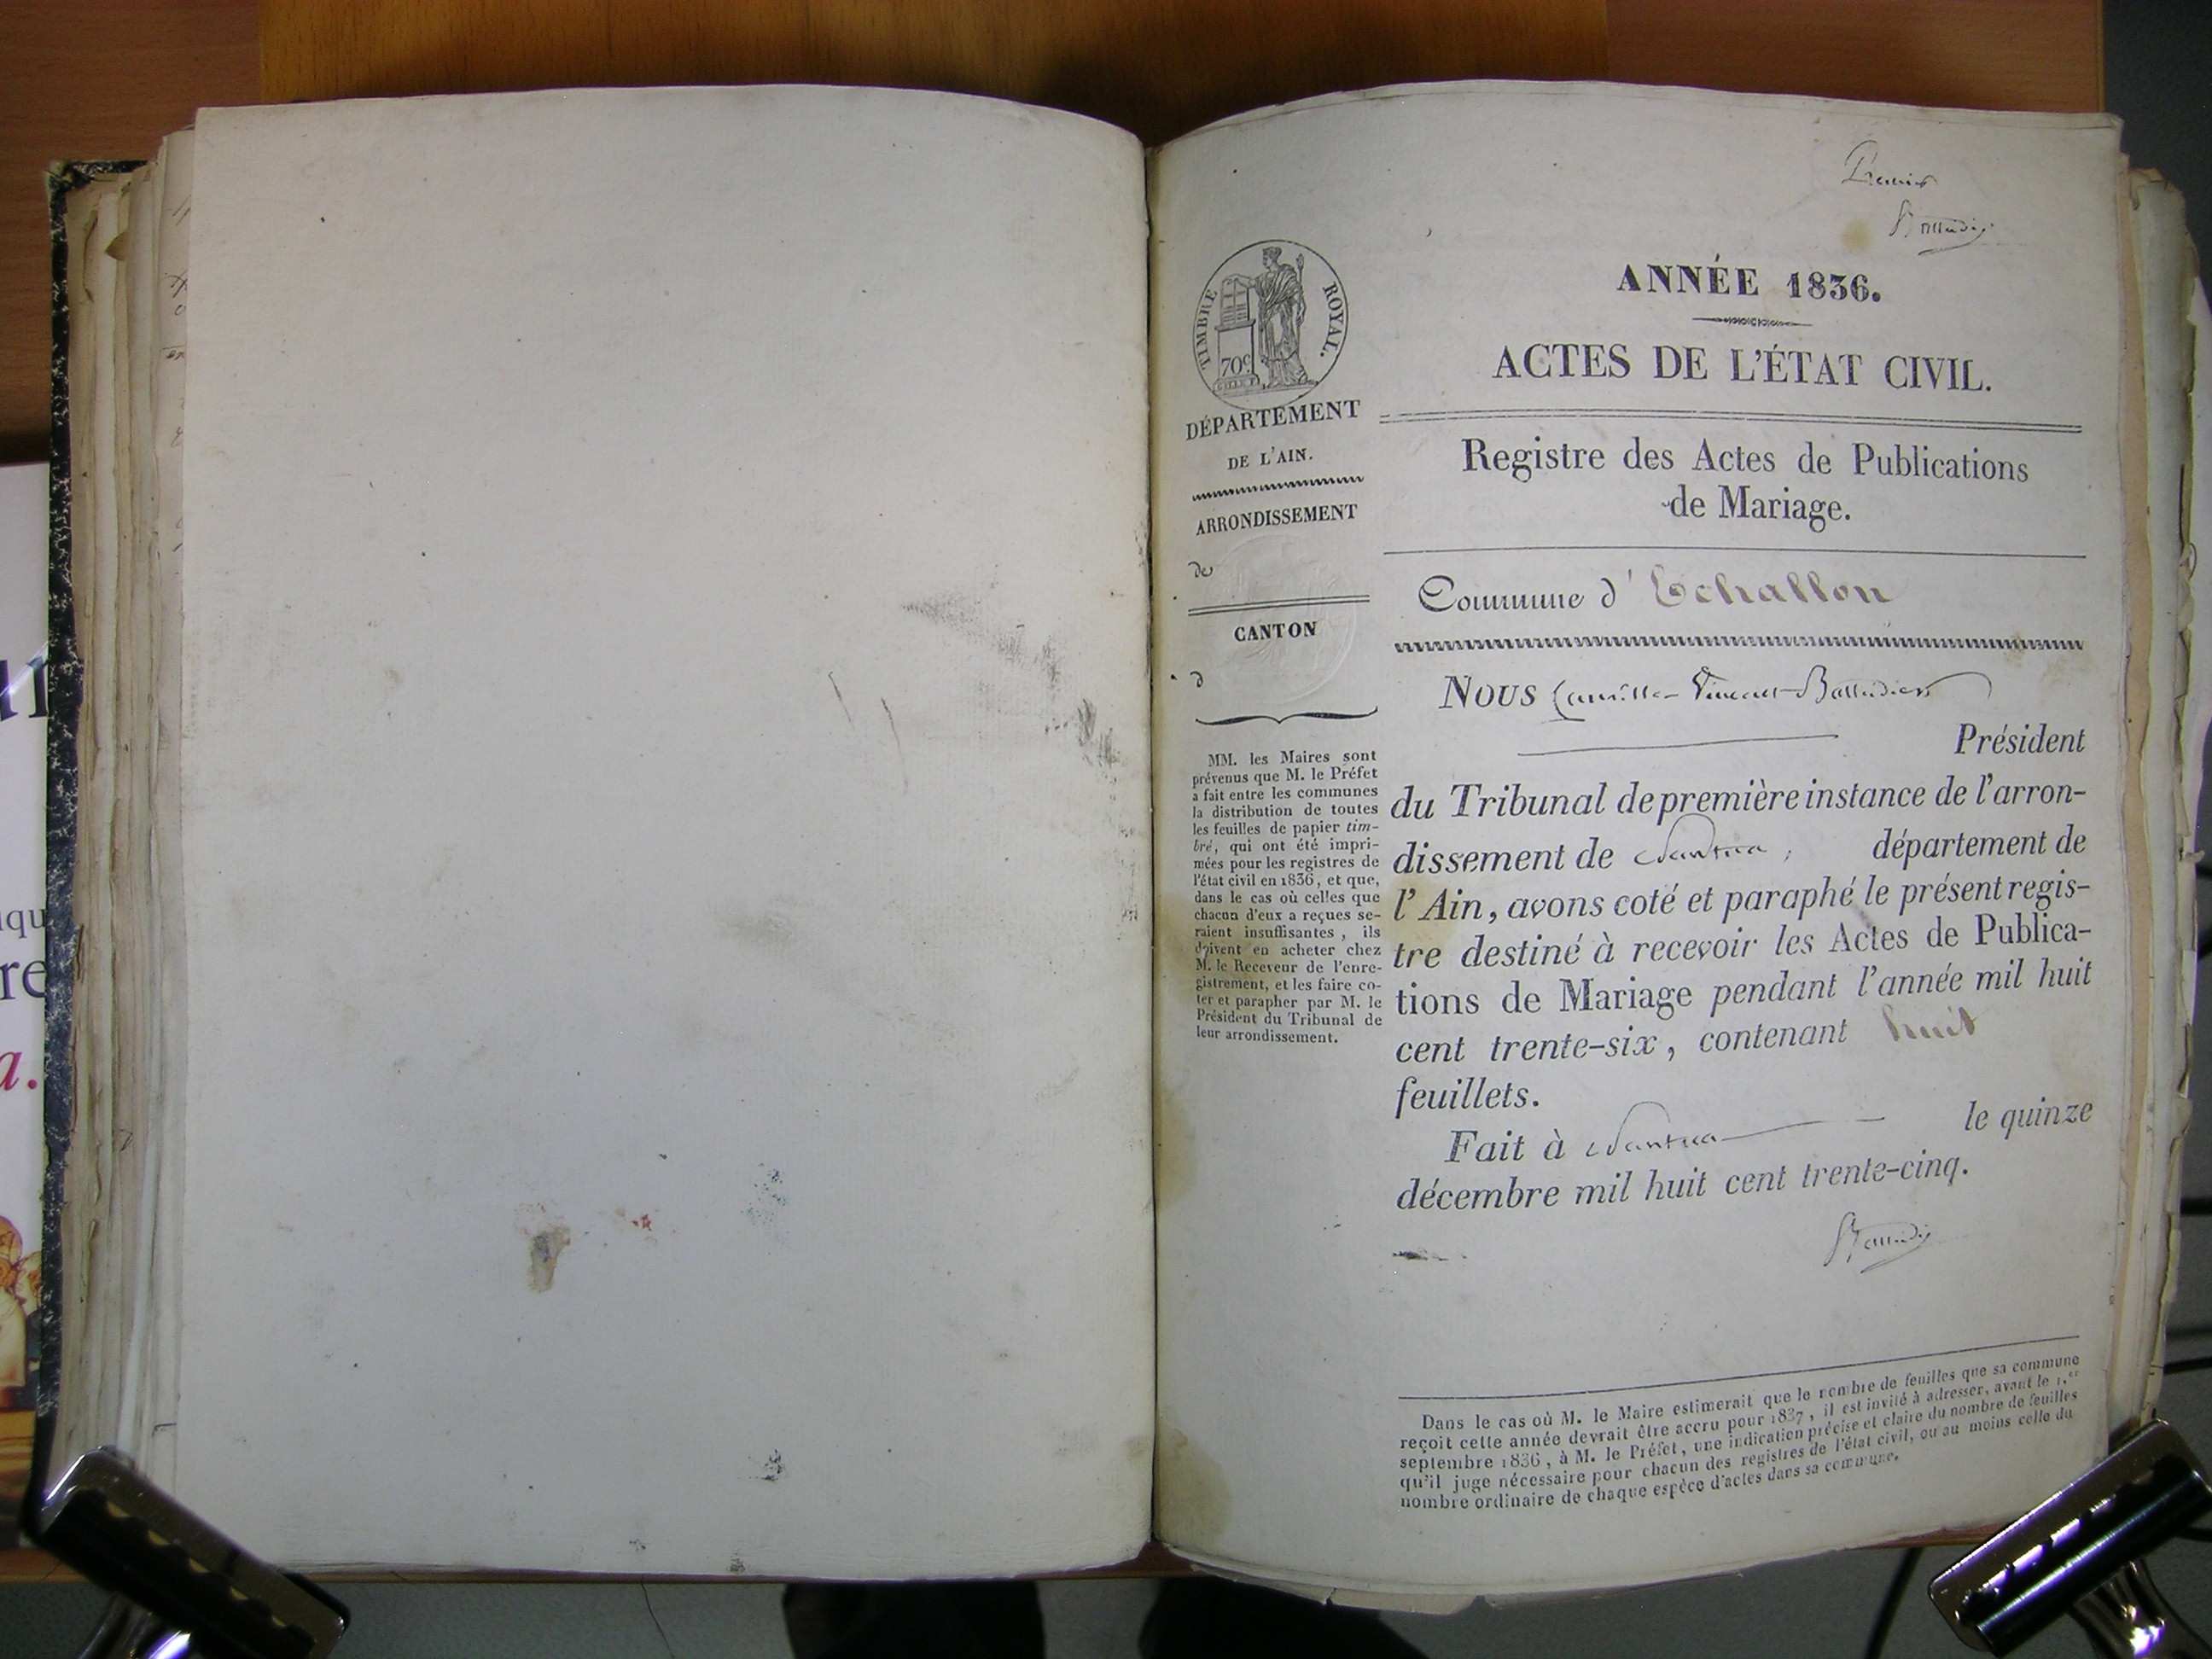 Premier
TIMBRE ROYAL.
70c
DÉPARTEMENT
DE L'AIN.
ARRONDISSEMENT
de
CANTON
d
MM. les Maires sont
prévenus que M. le Préfet
a fait entre les communes
la distribution de toutes
les feuilles de papier tim-
bré, qui ont été impri-
mées pour les registres de
l'état civil en 1836, et que,
dans le cas où celles que
chacun d'eux a reçues se-
raient insuffisantes, ils
doivent en acheter chez
M. le Receveur de l'enre-
gistrement, et les faire co-
ter et parapher par M. le
Président du Tribunal de
leur arrondissement.
ANNÉE 1836.
ACTES DE L'ÉTAT CIVIL.
Registre des Actes de Publications
de Mariage.
Commune d'Echallon
Nous Camille Vincent
Président
du Tribunal de première instance de l'arron-
dissement de Nantua, département de
l'Ain, avons coté et paraphé le présent regis-
tre destiné à recevoir les Actes de Publica-
tions de Mariage pendant l'année mil huit
cent trente-six, contenant huit
feuillets.
Fait à Nantua le quinze
décembre mil huit cent trente-cinq.
Dans le cas où M. le Maire estimerait que le nombre de feuilles que sa commune
reçoit cette année devrait être accru pour 1837, il est invité à adresser, avant le 1.er
septembre 1836, à M. le Préfet, une indication précise et claire du nombre de feuilles
qu'il juge nécessaire pour chacun des registres de l'état civil, ou au moins celle du
nombre ordinaire de chaque espèce d'actes dans sa commune.